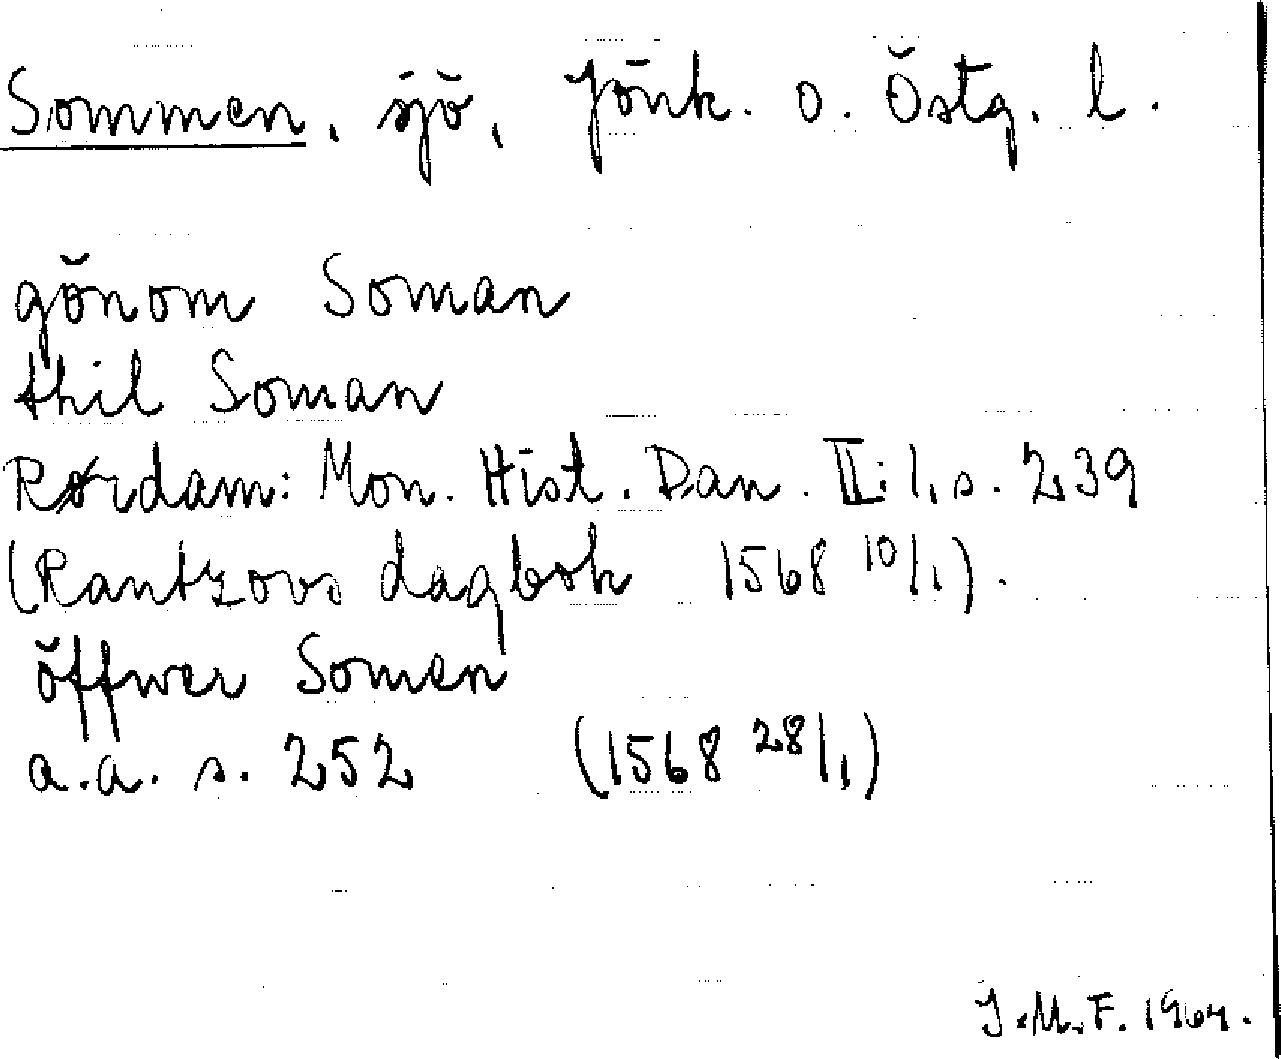 Sommen, sjö, Jönk. o. Östg. l.
gönom Soman
thil Soman
Rørdam: Mon. Hist. Dan. II:1, s. 239
(Rantzovs dagbok 1568 10/1).
öffwer Somen
a.a. s. 252 (1568 28/1)
J.M.F. 1964.